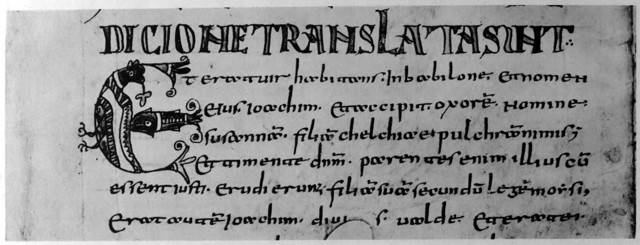 DICIONE TRANSLATA SUNT
Et erat uir habitans. In babilone. Et nomen
eius ioachim. Et accipit oxorē. nomine
susannā. filiā chelchiae pulchrā nimis;
Et timente dn̄m. parentes enim illius cū
essent iusti. Erudierunt filiā suā secundū legē morsi,
Erat autē ioachim. diui s ualde. Et erat ei.